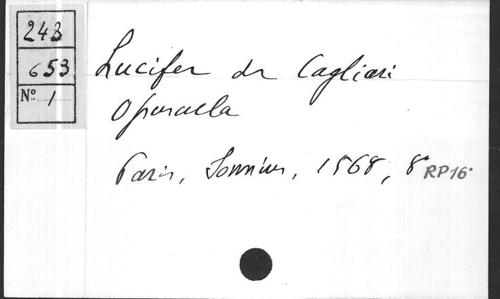 243
653
Nº 1
Lucifer de Cagliari
Opuscula
Paris, Sonnius, 1568, 8° RP16°